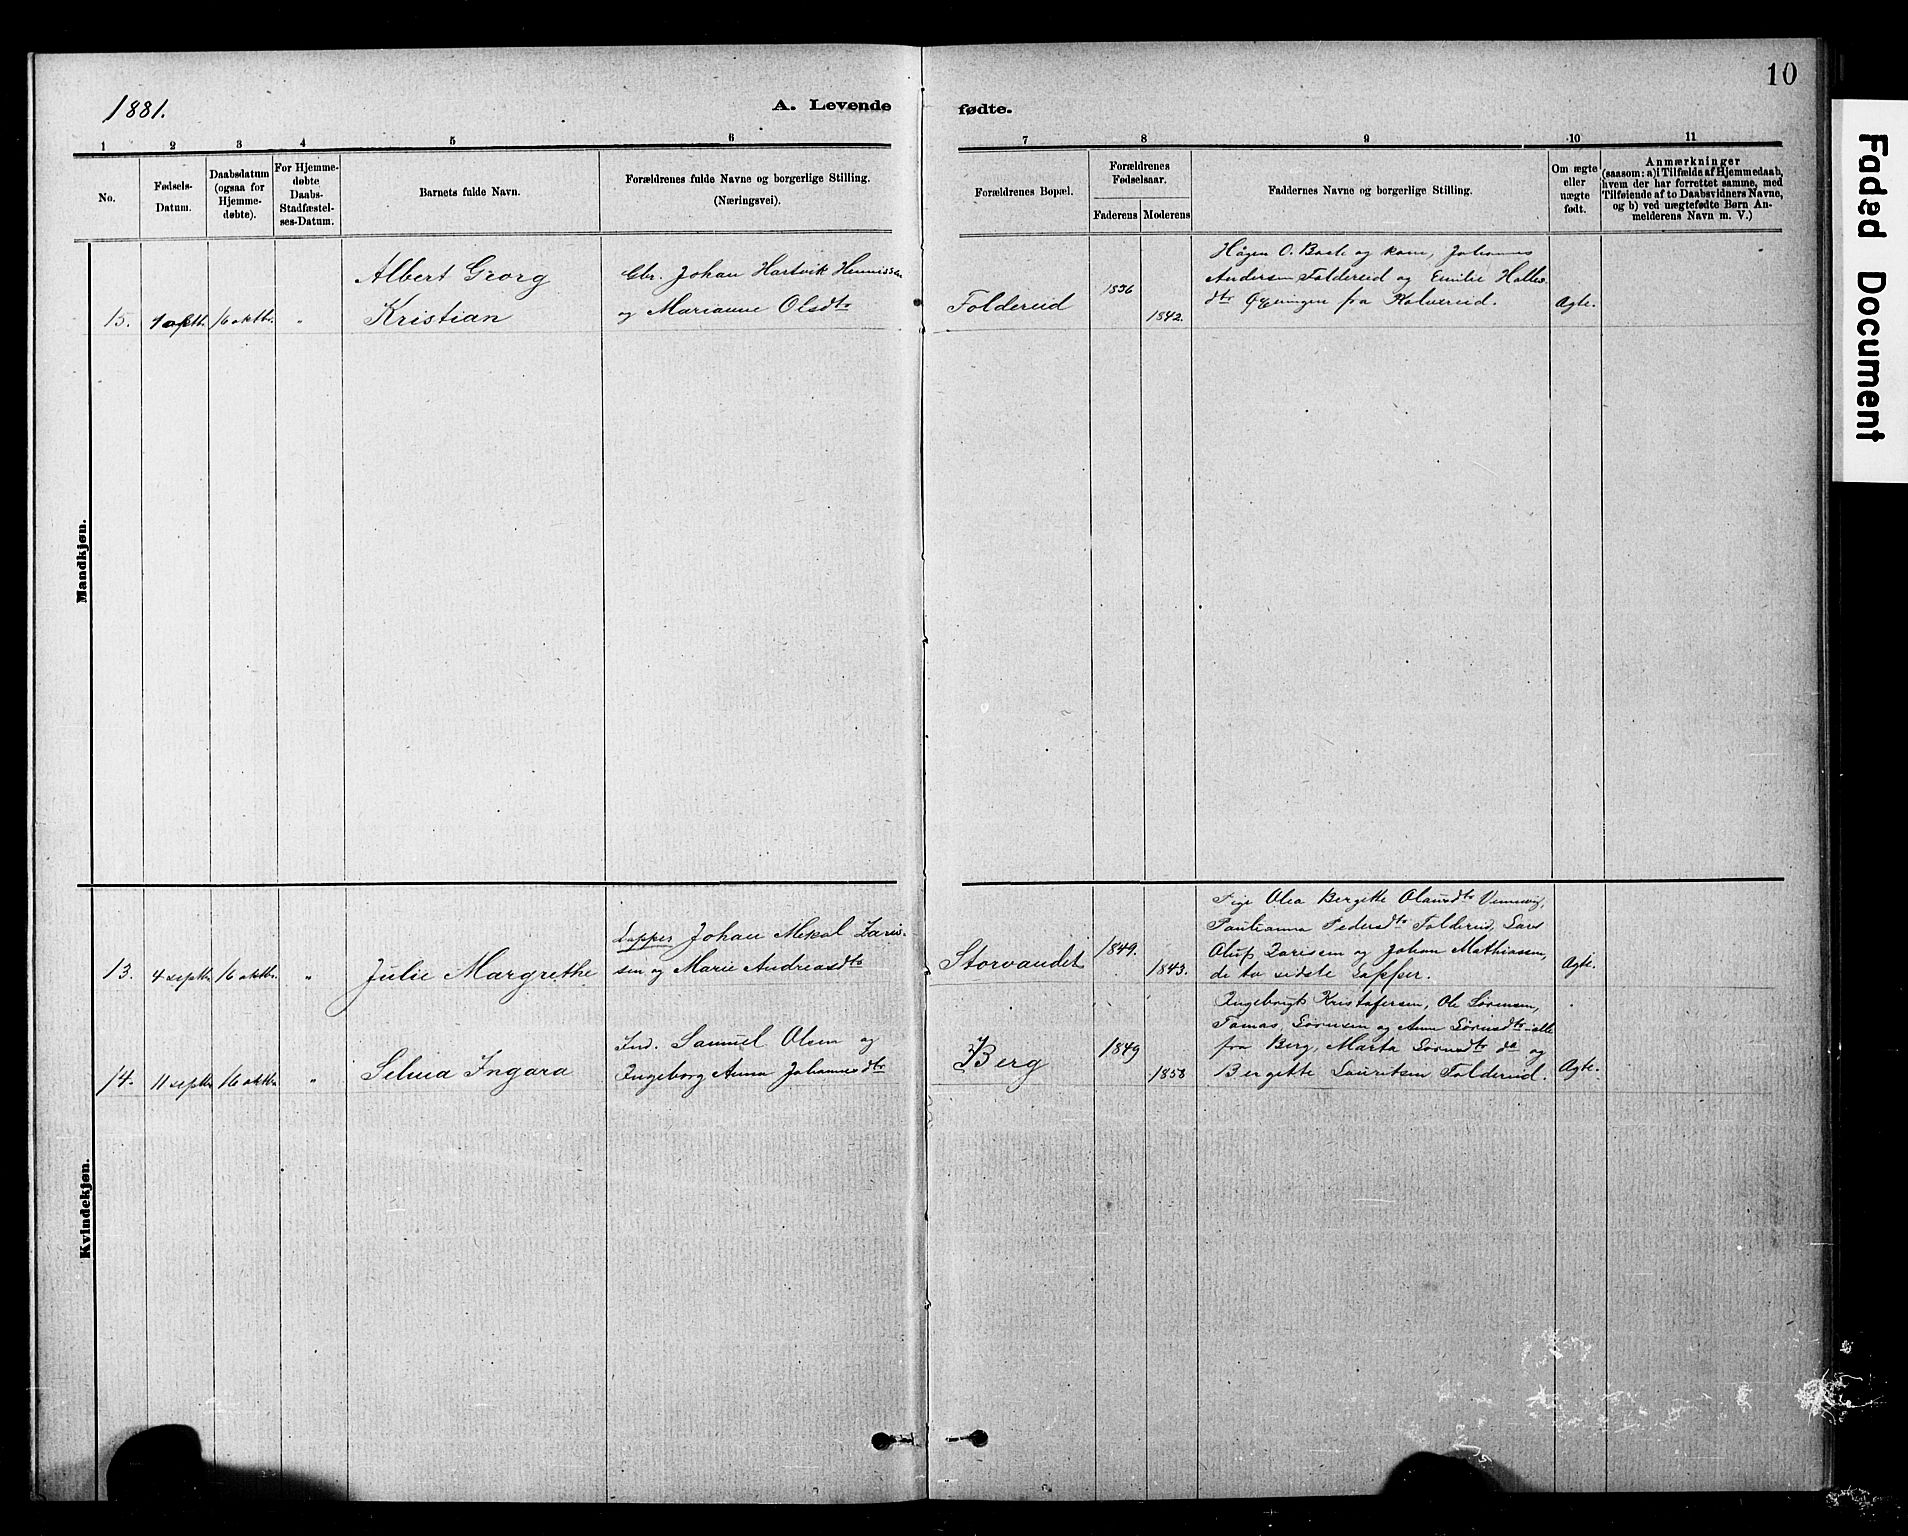 10
1881.
A. Levende fødte.
Faded Document
1 2 3 4 5 6 7 8 9 10 11
No.
Fødsels-
Datum.
Daabsdatum
(ogsaa for
Hjemme-
døbte).
For Hjemme-
døbte
Daabs-
Stadfæstel-
ses-Datum.
Barnets fulde Navn.
Forældrenes fulde Navne og borgerlige Stilling.
(Næringsvei).
Forældrenes Bopæl.
Forældrenes
Fødselsaar.
Faderens Moderens
Faddernes Navne og borgerlige Stilling.
Om ægte
eller
uægte
født.
Anmærkninger
(saasom: a) i Tilfælde af Hjemmedaab,
hvem der har forrettet samme, med
Tilføiende af to Daabsvidners Navne,
og b) ved uægtefødte Børn An-
melderens Navn m. V.)
Mandkjøn.
15.
16 oktbr.
"
Albert Georg
Kristian
Gbr. Johan Hartvik
og Marianne Olsdtr
Foldereid
1836
1842.
Hågen O. og kone, Johannes
Andersen Foldereid og Emilie
dtr fra Kolvereid.
Ægte.
Kvindekjøn.
13.
4 septbr.
16 oktbr.
"
Julie Margrethe
Lappes Johan Mikal Zaris-
sen og Marie Andreasdtr
Storvandet
1849.
1843.
Pige Olea Bergitte Olausdtr
Paulianna Pedersdtr Foldereid, Lars
Olup Zarisen og Johan Mathiassen,
de to sidste Lapper.
Ægte.
14.
11 septbr
16 oktbr.
"
Selma Ingara
Ind. Samuel Olsen og
Ingeborg Anna Johannesdtr
Berg
1849
1858
Ingebrigt Kristofersen, Ole Sørensen,
Tomas Sørensen og Anne Sørensdtr alle
fra Berg, Marta Sørensdtr do og
Bergitte Lauritsen Foldereid.
Ægte.